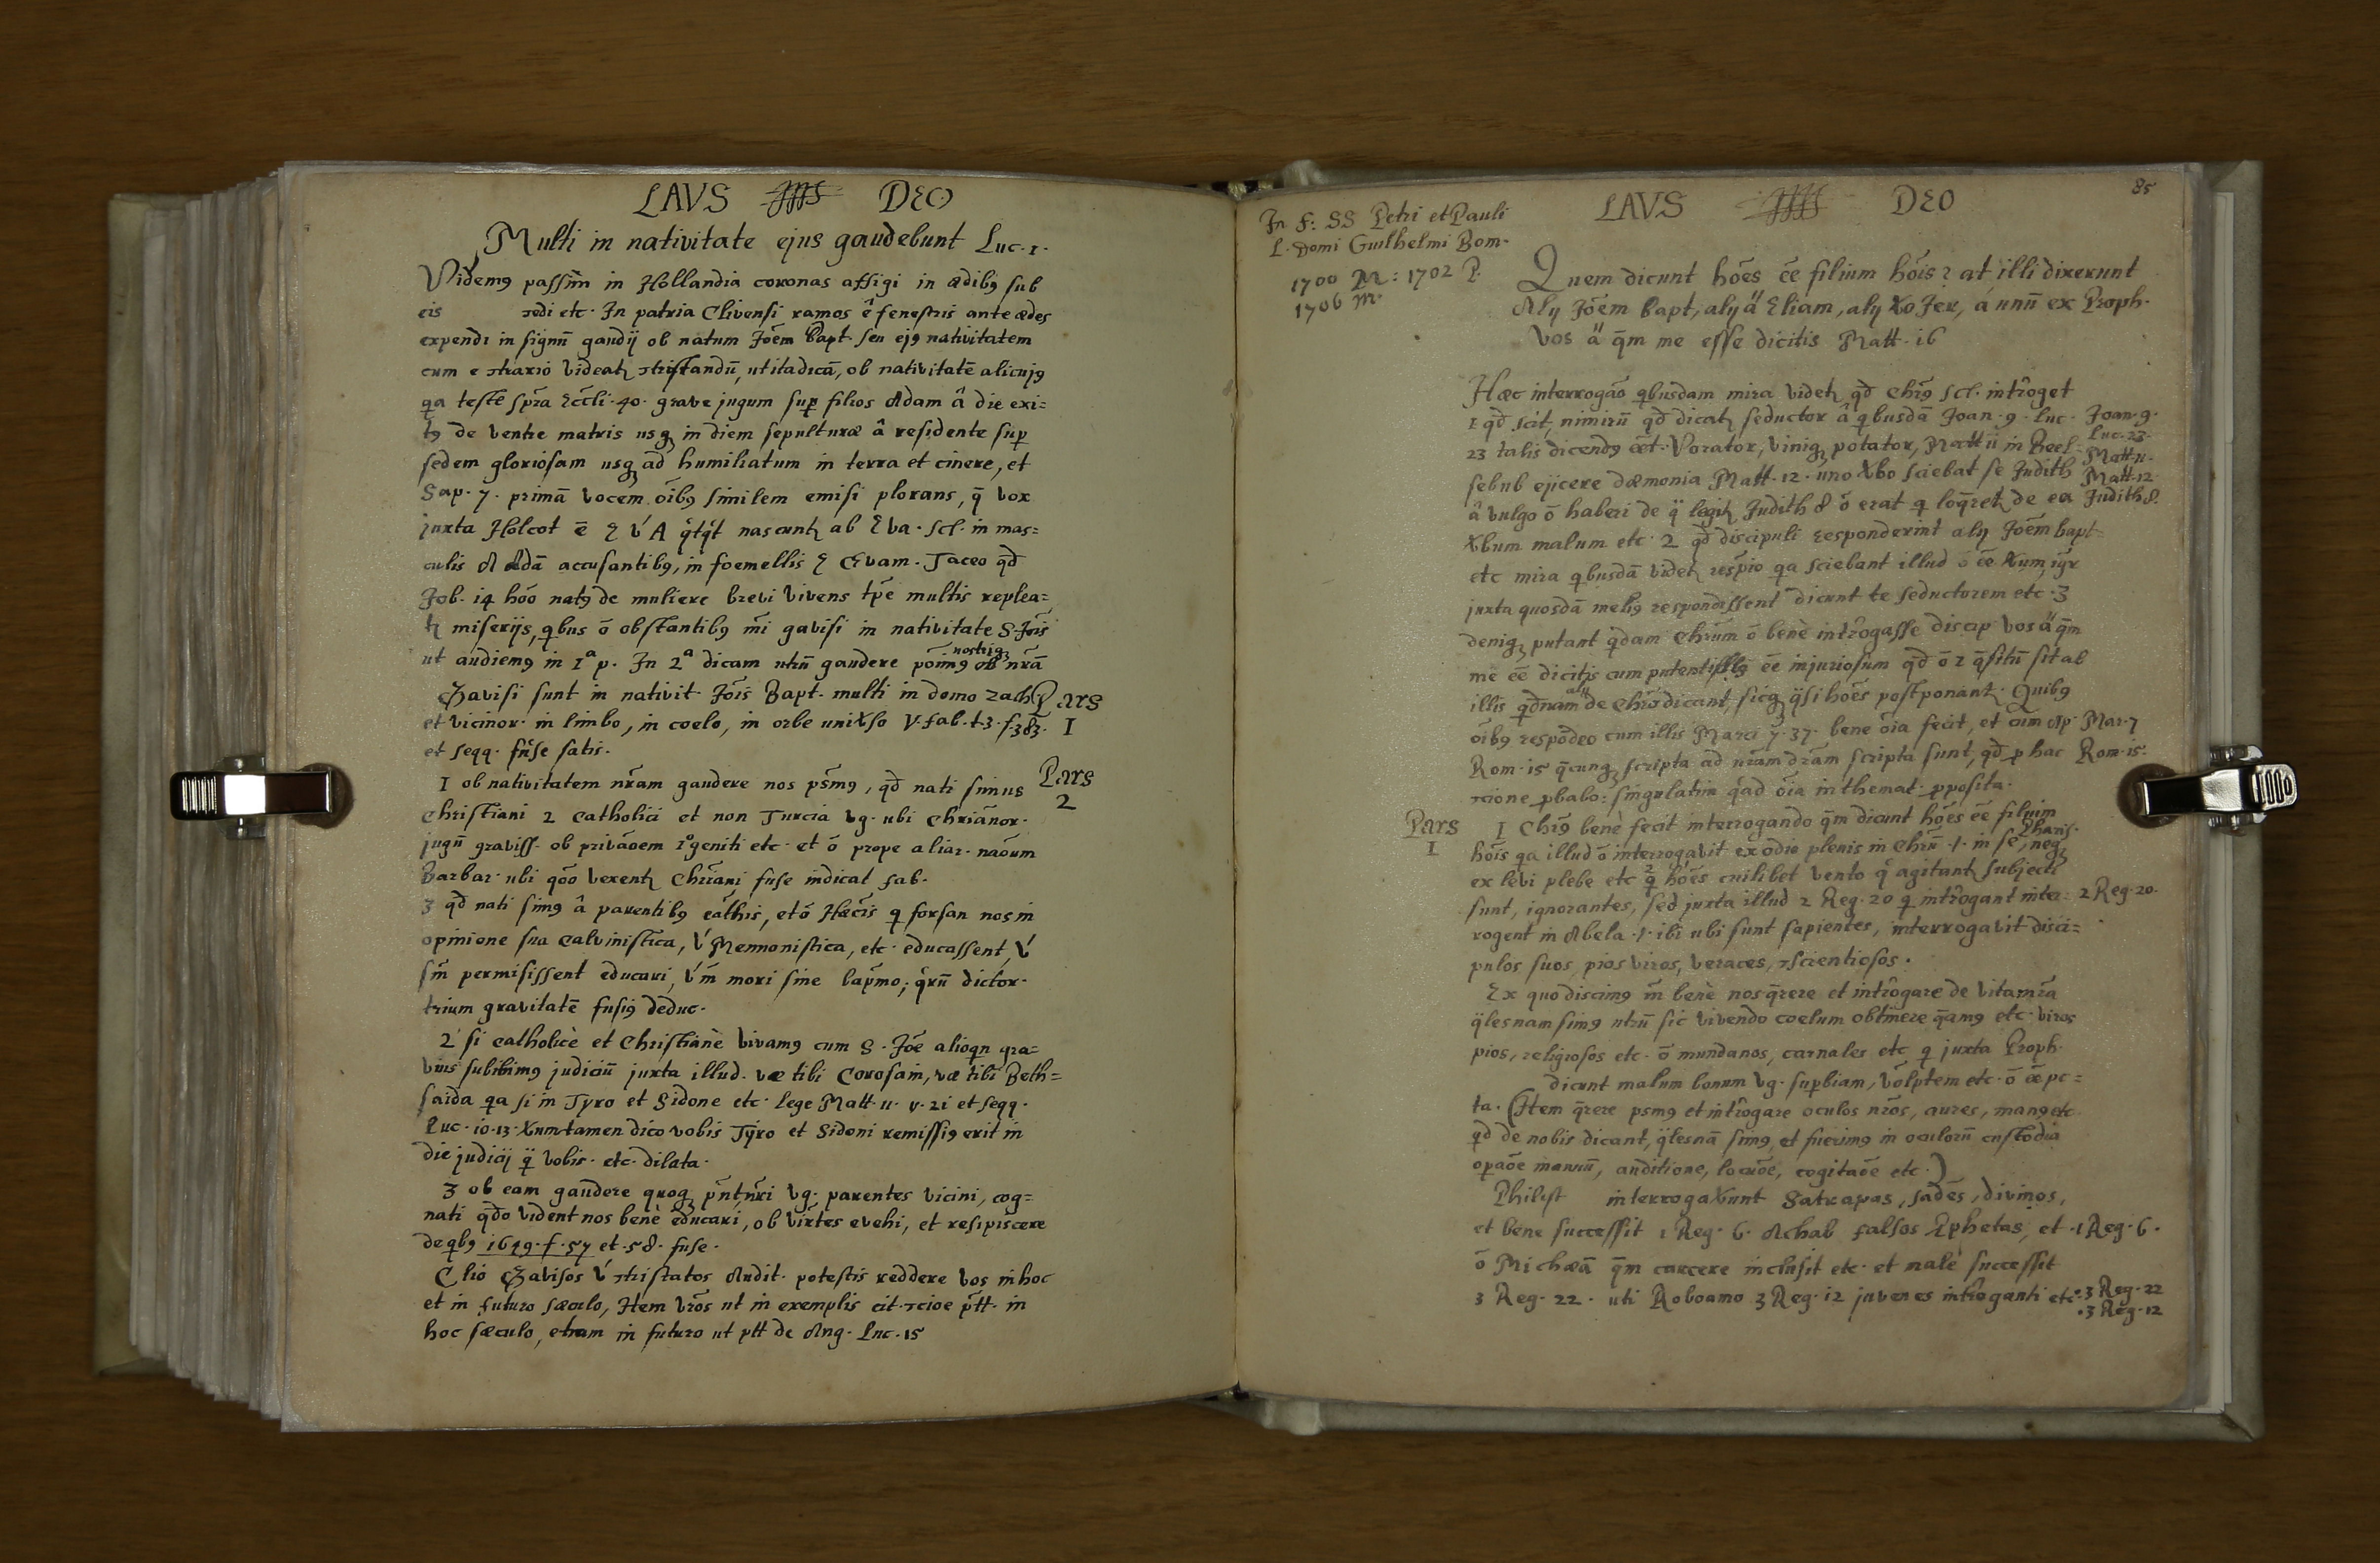 LAVS JHS DEO
Multi in nativitate ejus gaudebunt Luc. 1.
Videm9 passim in Hollandia coronas affigi in ædib9 sub
eis etc. In patria Clivensi ramos ê fenestris ante ædes
expendi in signū gaudij ob natum Joēm Bapt. seu ej9 nativitatem
cum e videatr tristandū, ut ita dicā, ob nativitatē alicuj9
qa teste Eccli. 40. grave jugum sup filios Adam â die exi=
t9 de ventre matris usq3 in diem sepulturæ â residente sup
sedem gloriosam usq3 ad humiliatum in terra et cinere, et
Sap. 7. primā vocem ōib9 similem emisi plorans, q̄ vox
juxta Holcot ē E v́ A nascuntr ab Eva. scl. in mas=
culis A Adā accusantib9, in foemellis E Evam. Taceo qd̄
Job. 14 hōo nat9 de muliere brevi vivens tp̄e multis replea=
tr miserijs, qbus ō obstantib9 gavisi in nativitate S. Jōis
ut audiem9 in 1ª p. In 2ª dicam utrū gaudere ob nrā
nostriq3
Gavisi sunt in nativit. Jōis Bapt. multi in domo Zach.
Pars
1
et vicinor. in limbo, in coelo, in orbe V. Fab. t.3. f.383.
et seqq. fuse satis.
1 ob nativitatem nr̄am gaudere nos psm9, qd̄ nati simus
Pars
2
Christiani 2 Catholici et non Turcia vg. ubi Chriānor.
jugū graviss. ob privāoem 1ºgeniti etc. et ō prope aliar. naōum
Barbar. ubi qōo vexentr Chriani fuse indicat Fab.
3 qd̄ nati sim9 â parentib9 cāthis, et ō Hæcis q forsan nos in
opinione sua Calvinistica, v́ Mennonistica, etc. educassent, v́
sm̄ permisissent educari, v́ mori sine bapmo; qrū dictor.
trium gravitatē fusi9 deduc.
2 si catholicè et Christianè vivam9 cum S. Jōe alioqn gra=
vius subibim9 judiciū juxta illud. væ tibi Corosain, væ tibi Beth=
saida qa si in Tyro et Sidone etc. lege Matt. 11. v. 21 et seqq.
Luc. 10. 13. Xumtamen dico vobis Tyro et Sidoni remissi9 erit in
die judicij vobis. etc. dilata.
3 ob eam gaudere quoq3 vg. parentes vicini, cog=
nati qdo vident nos benè educari, ob virtes evehi, et resipiscere
de qb9 1649. f. 57 et. 58. fuse.
Clio Gavisos v́ tristatos Audit. potestis reddere vos in hoc
et in futuro sæculo, Item vros ut in exemplis cit. in
hoc sæculo, etiam in futuro ut de Ang. Luc. 15
85
In F: SS Petri et Pauli
L. Domi Guilhelmi Bom.
1700 M: 1702 P.
1706 M.
LAVS JHS DEO
Quem dicunt hōes ēe filium hōis? at illi dixerunt
Alij Jōem bapt, alij ä Eliam, alij Xo Jer, á unū ex Proph.
Vos ä q̄m me esse dicitis Matt. 16
Hæc interrogāo qbusdam mira videtr qd̄ Chr9 scl. intrôget
1 qd̄ scit, nimirū qd̄ dicatr seductor â qbusdā Joan. 9. Luc. Joan. 9.
23 talis dicend9 Vorator, viniq3 potator, Matt 11 in Beel- Luc. 23.
Matt. 11.
sebub ejicere dæmonia Matt. 12. uno Xbo sciebat se Judith Matt. 12
â vulgo ō haberi de legitr Judith 8 ō erat q loqretr de ea Judith 8.
Xbum malum etc. 2 qd̄ discipuli responderint alij Jōem bapt
etc mira qbusdā videtr respio qa sciebant illud ō ēe Xum, igr
juxta quosdā meli9 respondissent dicunt te seductorem etc. 3
deniq3 putant qdam Chrum ō benè intrôgasse discip vos ä q̄m
me ēe dicitis cum ēe injuriosum qd̄ ō sit ab
illis qd̄nam alij de Chrō dicant, sicq3 hōes postponant. Quib9
ōib9 respōdeo cum illis Marci 7. 37. bene ōia fecit, et cum Ap. Mar. 7
Rom. 15 q̄cunq3 scripta ad nr̄am dr̄am scripta sunt, qd̄ p hac Rom. 15.
pbabo: singulatim qad ōia in themat. pposita.
Pars
1
1 Chr9 benè fecit interrogando q̄m dicunt hōes ēe filium
hōis qa illud ō interrogavit ex odio plenis in Chrū .1. in se Pharis. neq3
ex levi plebe etc q hōes cuilibet vento q agitantr subjecti
sunt, ignorantes, sed juxta illud 2 Reg. 20 q intrôgant inter= 2 Reg. 20.
rogent in Abela .1. ibi ubi sunt sapientes, interrogavit disci=
pulos suos, pios viros, veraces,
Ex quo discim9 benè nos q̄rere et intrôgare de vita nra
q̈lesnam sim9 utrū sic vivendo coelum obtinere q̄am9 etc. viros
pios, religiosos etc. ō mundanos, carnales etc q juxta Proph.
dicunt malum bonum vg. supbiam, volptem etc. ō pc=
ta. (Item q̄rere psm9 et intrôgare oculos nros, aures, man9 etc
qd de nobis dicant, q̈lesnā sim9, et fuerim9 in oculorū custodia
opaōe manuū, auditione, locuōe, cogitaōe etc.)
Philist interrogaXunt Satrapas, sādes, divinos,
et bene successit 1 Reg. 6. Achab falsos Pphetas, et .1 Reg. 6.
ō Michæā q̄m carcere inclusit etc. et malè successit
3 Reg. 22. uti Roboamo 3 Reg. 12 juvenes intrôganti etc. .3 Reg. 22
.3 Reg. 12